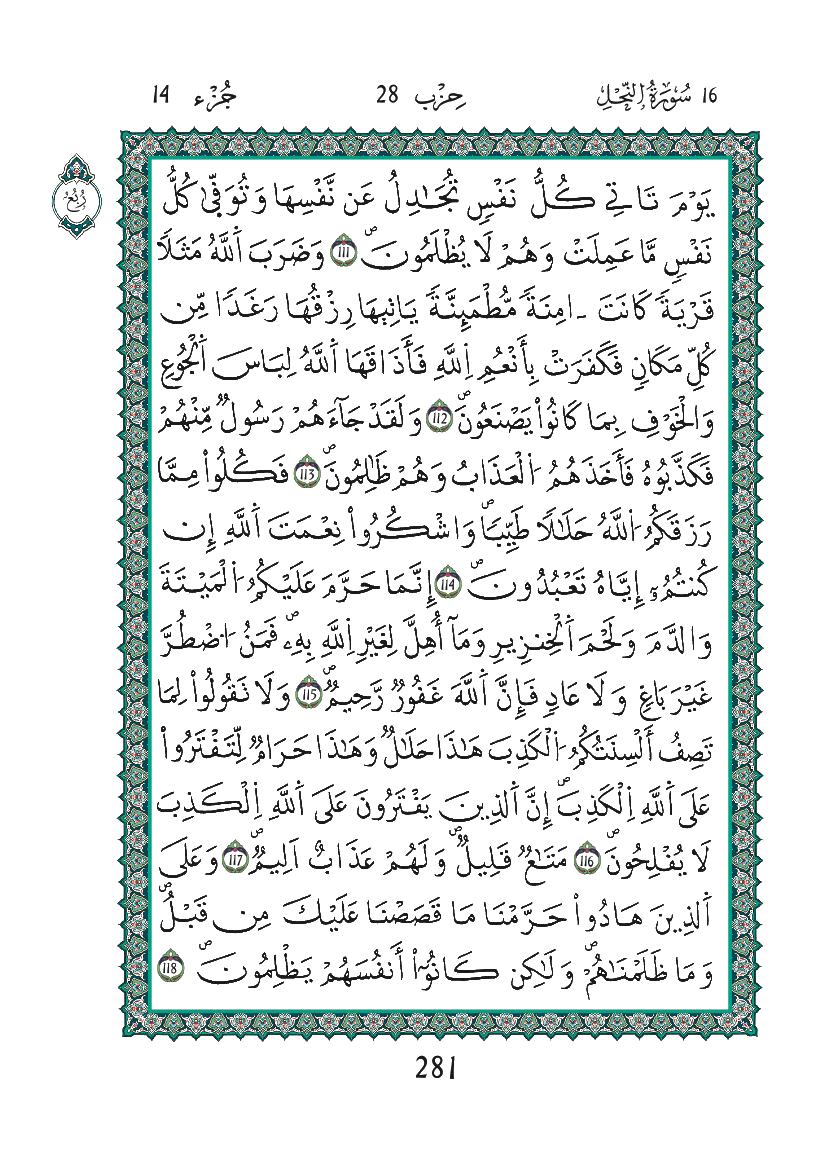 16 سُورَةُ النَّحْلِ حِزْب 28 جُزْء 14
رُبُع
يَوْمَ تَاتِے كُلُّ نَفْسٖ تُجَٰدِلُ عَن نَّفْسِهَا وَتُوَفّ۪ىٰ كُلُّ
نَفْسٖ مَّا عَمِلَتْ وَهُمْ لَا يُظْلَمُونَۖ 111 وَضَرَبَ اَ۬للَّهُ مَثَلاٗ
قَرْيَةٗ كَانَتَ اٰمِنَةٗ مُّطْمَئِنَّةٗ يَاتِيهَا رِزْقُهَا رَغَداٗ مِّن
كُلِّ مَكَانٖ فَكَفَرَتْ بِأَنْعُمِ اِ۬للَّهِ فَأَذَٰقَهَا اَ۬للَّهُ لِبَاسَ اَ۬لْجُوعِ
وَالْخَوْفِ بِمَا كَانُواْ يَصْنَعُونَۖ 112 وَلَقَدْ جَآءَهُمْ رَسُولٞ مِّنْهُمْ
فَكَذَّبُوهُ فَأَخَذَهُمُ اُ۬لْعَذَابُ وَهُمْ ظَٰلِمُونَۖ 113 فَكُلُواْ مِمَّا
رَزَقَكُمُ اُ۬للَّهُ حَلَٰلاٗ طَيِّباٗۖ وَاشْكُرُواْ نِعْمَتَ اَ۬للَّهِ إِن
كُنتُمُۥٓ إِيَّاهُ تَعْبُدُونَۖ 114 إِنَّمَا حَرَّمَ عَلَيْكُمُ اُ۬لْمَيْتَةَ
وَالدَّمَ وَلَحْمَ اَ۬لْخِنزِيرِ وَمَآ أُهِلَّ لِغَيْرِ اِ۬للَّهِ بِهِۦۖ فَمَنُ اُ۟ضْطُرَّ
غَيْرَ بَاغٖ وَلَا عَادٖ فَإِنَّ اَ۬للَّهَ غَفُورٞ رَّحِيمٞۖ 115 وَلَا تَقُولُواْ لِمَا
تَصِفُ أَلْسِنَتُكُمُ اُ۬لْكَذِبَ هَٰذَا حَلَٰلٞ وَهَٰذَا حَرَامٞ لِّتَفْتَرُواْ
عَلَى اَ۬للَّهِ اِ۬لْكَذِبَۖ إِنَّ اَ۬لذِينَ يَفْتَرُونَ عَلَى اَ۬للَّهِ اِ۬لْكَذِبَ
لَا يُفْلِحُونَۖ 116 مَتَٰعٞ قَلِيلٞۖ وَلَهُمْ عَذَابٌ اَلِيمٞۖ 117 وَعَلَى
اَ۬لذِينَ هَادُواْ حَرَّمْنَا مَا قَصَصْنَا عَلَيْكَ مِن قَبْلُۖ
وَمَا ظَلَمْنَٰهُمْۖ وَلَٰكِن كَانُوٓاْ أَنفُسَهُمْ يَظْلِمُونَۖ 118
281